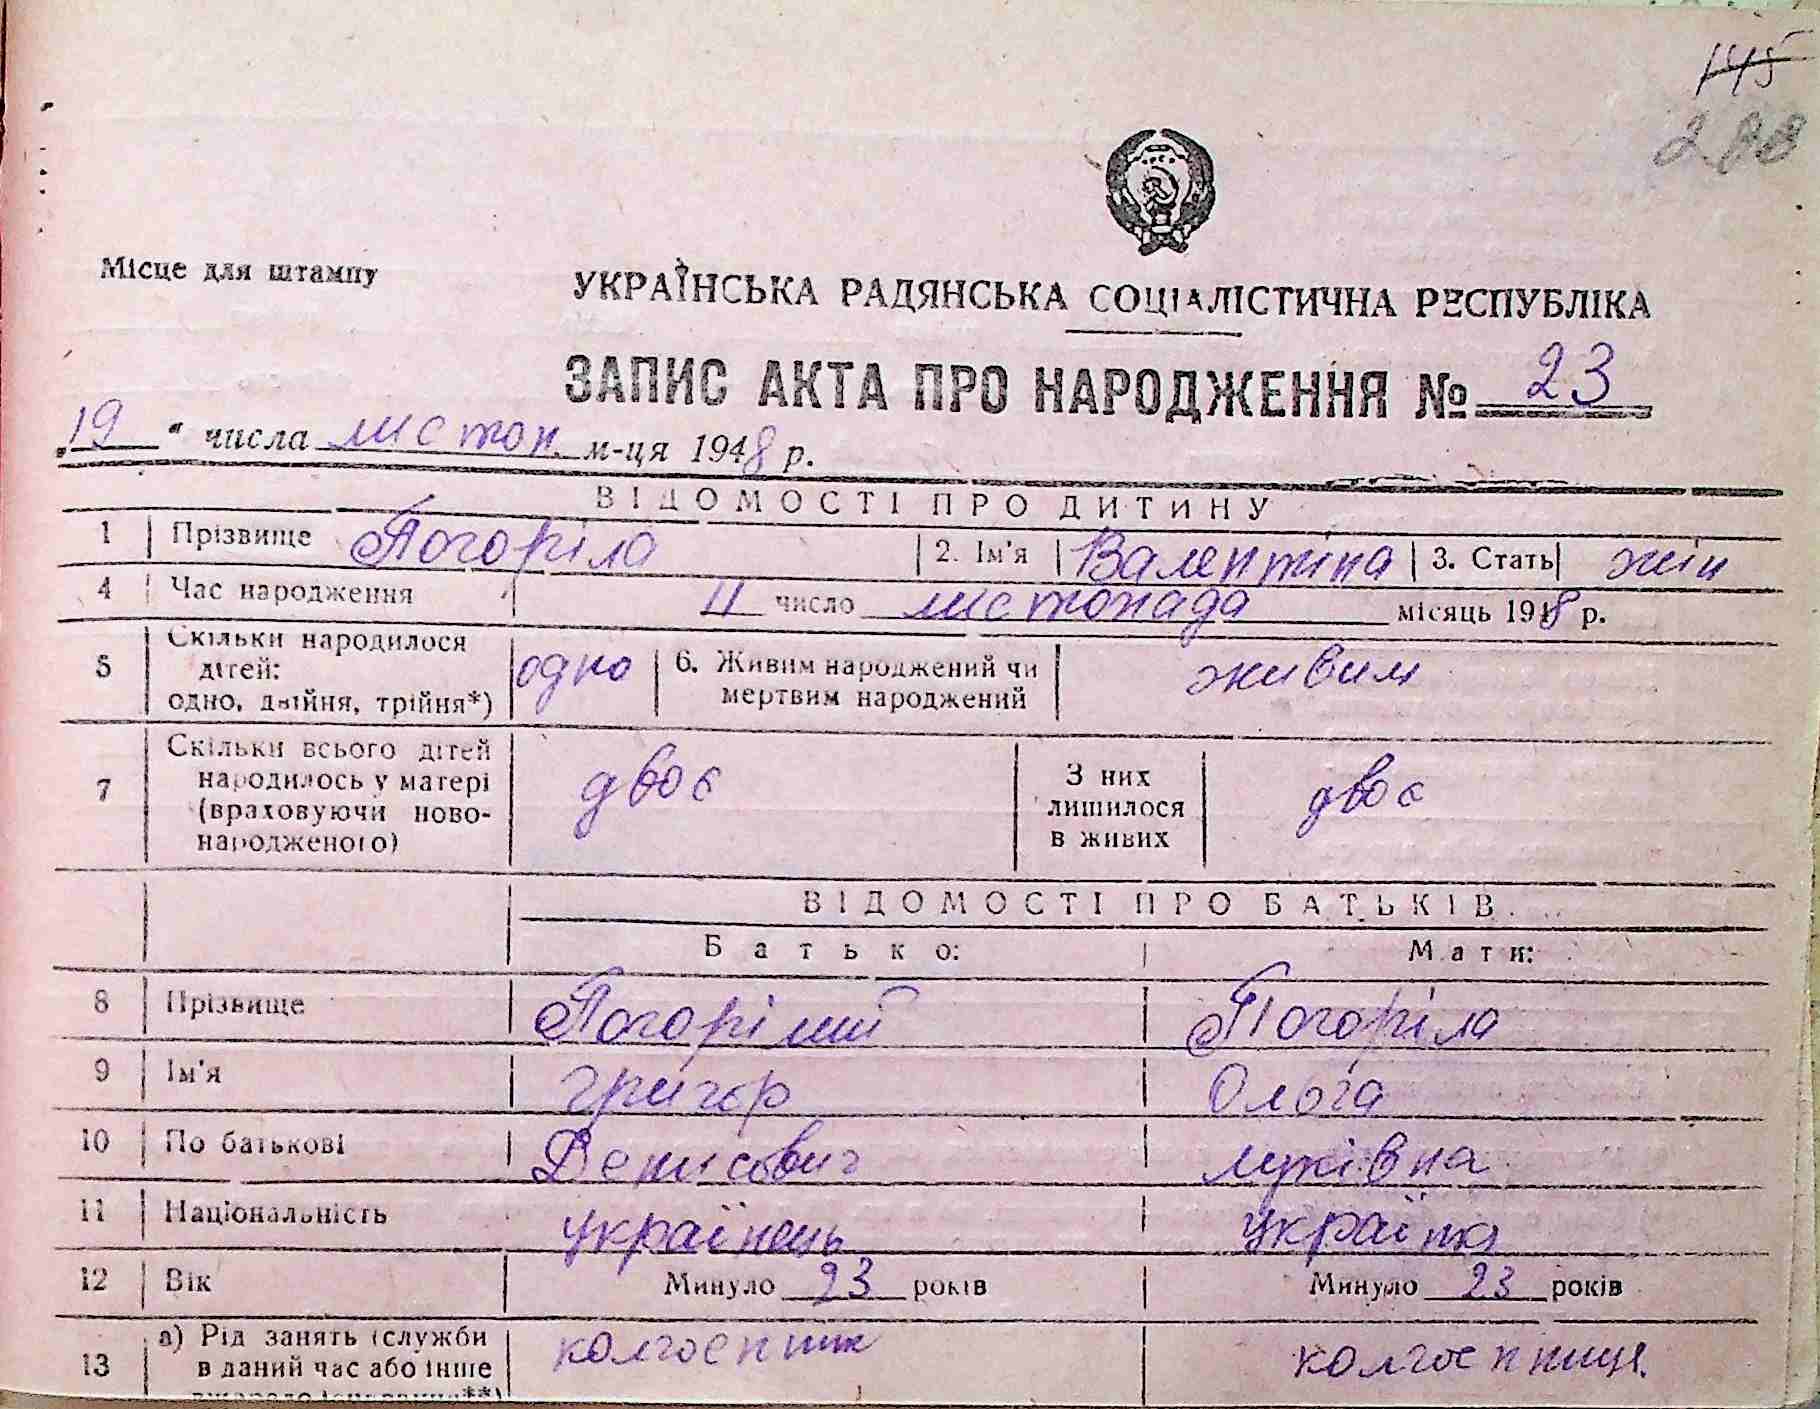 145
288
Місце для штампу
УКРАЇНСЬКА РАДЯНСЬКА СОЦІАЛІСТИЧНА РЕСПУБЛІКА
ЗАПИС АКТА ПРО НАРОДЖЕННЯ № 23
„19“ числа листоп. м-ця 1948 р.
ВІДОМОСТІ ПРО ДИТИНУ
1 Прізвище Погоріла 2. Ім'я Валентіна 3. Стать жін
4 Час народження 11 число листопада місяць 1948 р.
5 Скільки народилося дітей: одно, двійня, трійня*) одно 6. Живим народжений чи мертвим народжений живим
7 Скільки всього дітей народилось у матері (враховуючи новонародженого) двоє З них лишилося в живих двоє
ВІДОМОСТІ ПРО БАТЬКІВ
Батько: Мати:
8 Прізвище Погорілий Погоріла
9 Ім'я Григор Ольга
10 По батькові Денисович Луківна
11 Національність українець українка
12 Вік Минуло 23 років Минуло 23 років
13 а) Рід занять (служби в даний час або інше колгоспник колгоспниця.